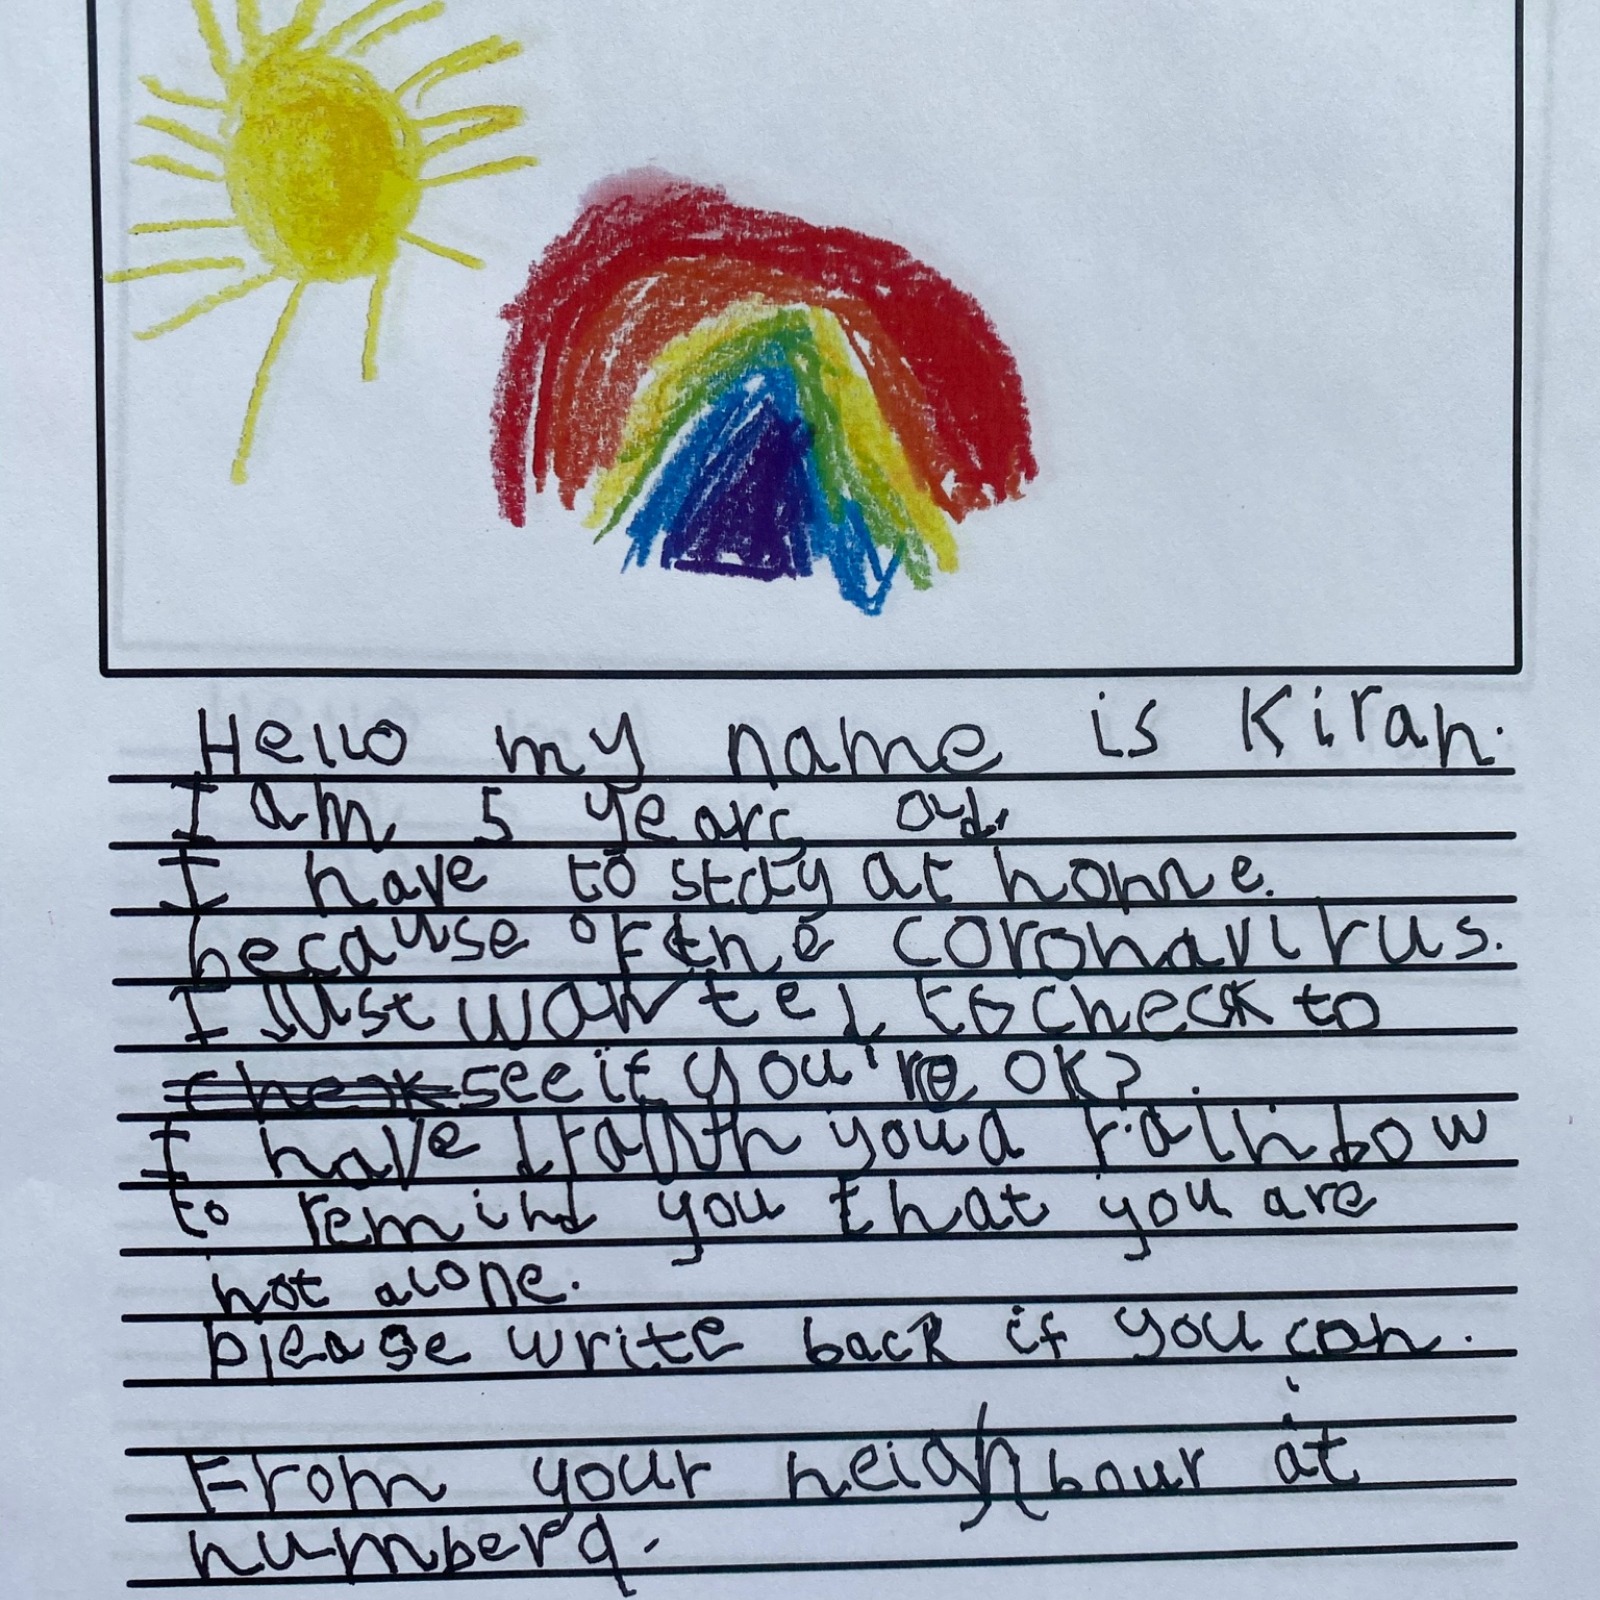 Hello my name is Kiran.
I am 5 years old.
I have to stay at home.
because of the coronavirus.
I Just wanted to check to
check see if you're OK?.
I have drawn you a rainbow
to remind you that you are
not alone.
please write back if you can.
From your neighbour at
number 9.